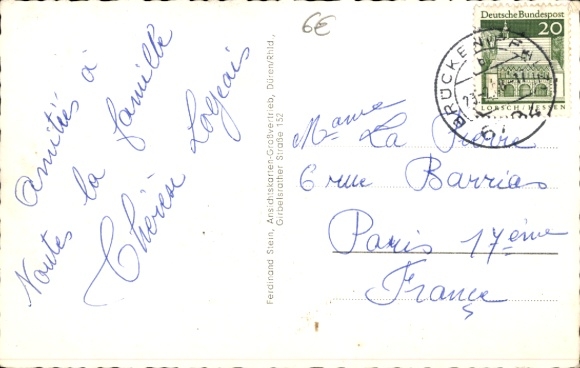 6€
Deutsche Bundespost
20
LORSCH/HESSEN
amitiés à
toutes la famille
Thérèse
Ferdinand Stein, Ansichtskarten-Großvertrieb, Düren/Rhld.,
Girbelsrather Straße 152
Mme La
6 rue Barrias
Paris 17ème
France